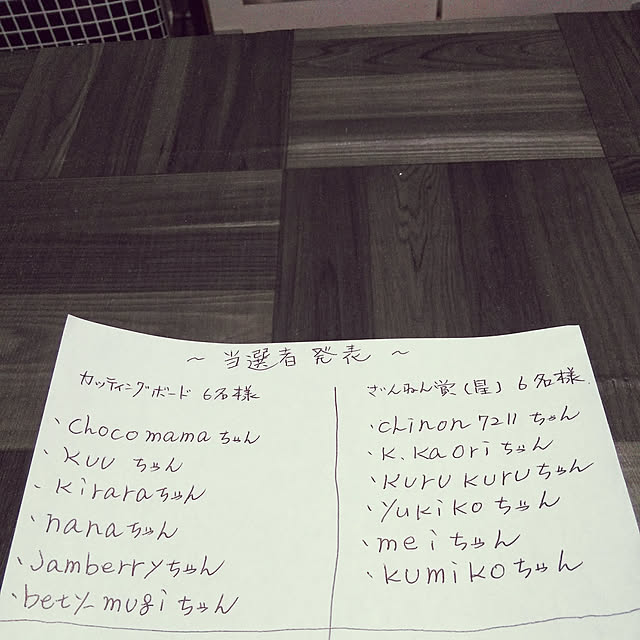 ～ 当選者発表 ～
カッティングボード 6名様
・choco mamaちゃん
・kuu ちゃん
・kiraraちゃん
・nanaちゃん
・Jamberryちゃん
・bety-mugiちゃん
ざんねん賞(星) 6名様
・chinon7211ちゃん
・K.Kaoriちゃん
・KURUKURUちゃん
・yukikoちゃん
・meiちゃん
・kumikoちゃん